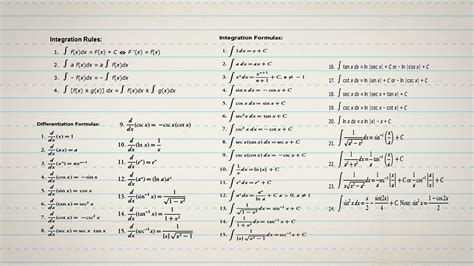 Integration Rules:
1. ∫ f(x)dx = F(x) + C ⇔ F'(x) = f(x)
2. ∫ a f(x)dx = a ∫ f(x)dx
3. ∫ - f(x)dx = - ∫ f(x)dx
4. ∫ [f(x) ± g(x)] dx = ∫ f(x)dx ± ∫ g(x)dx
Differentiation Formulas:
1. d/dx (x) = 1
2. d/dx (ax) = a
3. d/dx (xⁿ) = nxⁿ⁻¹
4. d/dx (cos x) = −sin x
5. d/dx (sin x) = cos x
6. d/dx (tan x) = sec² x
7. d/dx (cot x) = −csc² x
8. d/dx (sec x) = sec x tan x
9. d/dx (csc x) = −csc x(cot x)
10. d/dx (ln x) = 1/x
11. d/dx (eˣ) = eˣ
12. d/dx (aˣ) = (ln a)aˣ
13. d/dx (sin⁻¹ x) = 1/√(1 − x²)
14. d/dx (tan⁻¹ x) = 1/(1 + x²)
15. d/dx (sec⁻¹ x) = 1/(|x| √(x² − 1))
Integration Formulas:
1. ∫ 1 dx = x + C
2. ∫ a dx = ax + C
3. ∫ xⁿ dx = xⁿ⁺¹/(n + 1) + C, n ≠ −1
4. ∫ sin x dx = −cos x + C
5. ∫ cos x dx = sin x + C
6. ∫ sec² x dx = tan x + C
7. ∫ csc² x dx = −cot x + C
8. ∫ sec x(tan x) dx = sec x + C
9. ∫ csc x(cot x) dx = −csc x + C
10. ∫ 1/x dx = ln |x| + C
11. ∫ eˣ dx = eˣ + C
12. ∫ aˣ dx = aˣ/ln a + C a > 0, a ≠ 1
13. ∫ 1/√(1 − x²) dx = sin⁻¹ x + C
14. ∫ 1/(1 + x²) dx = tan⁻¹ x + C
15. ∫ 1/(|x| √(x² − 1)) dx = sec⁻¹ x + C
16. ∫ tan x dx = ln |sec x| + C or - ln |cos x| + C
17. ∫ cot x dx = ln |sin x| + C or - ln |csc x| + C
18. ∫ sec x dx = ln |sec x + tan x| + C
19. ∫ csc x dx = ln |csc x - cot x| + C
20. ∫ ln x dx = x ln |x| - x + C